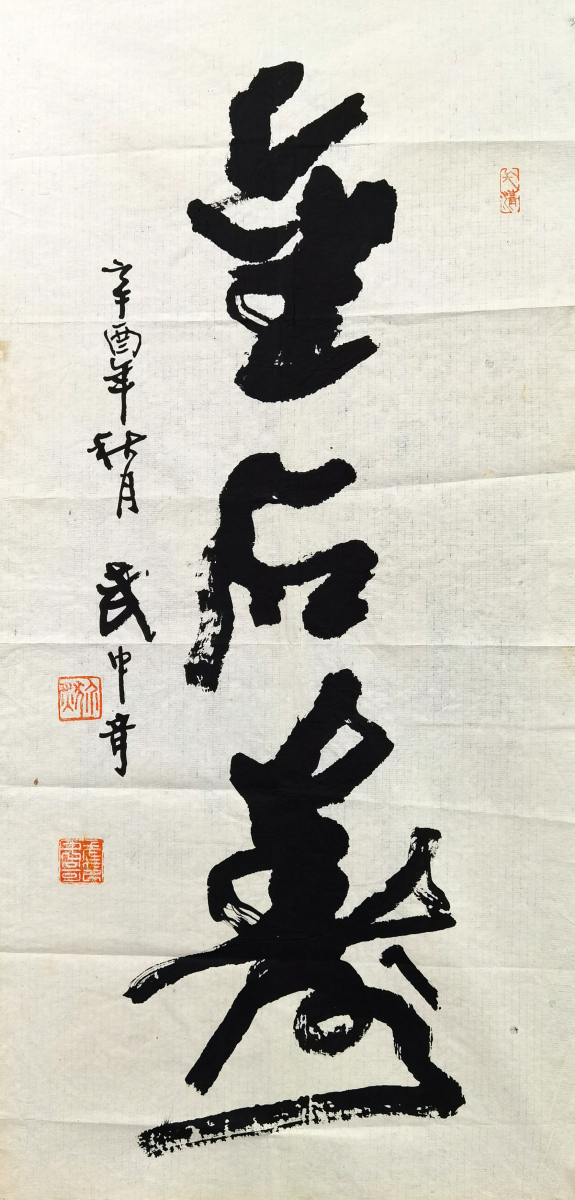 金石壽
辛酉年秋月 武中奇